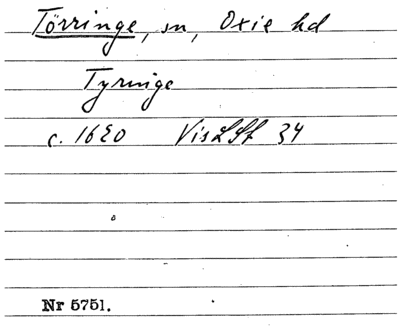 Törringe, sn, Oxie hd
Tyringe
c. 1620 VisLSt 34
Nr 5751.